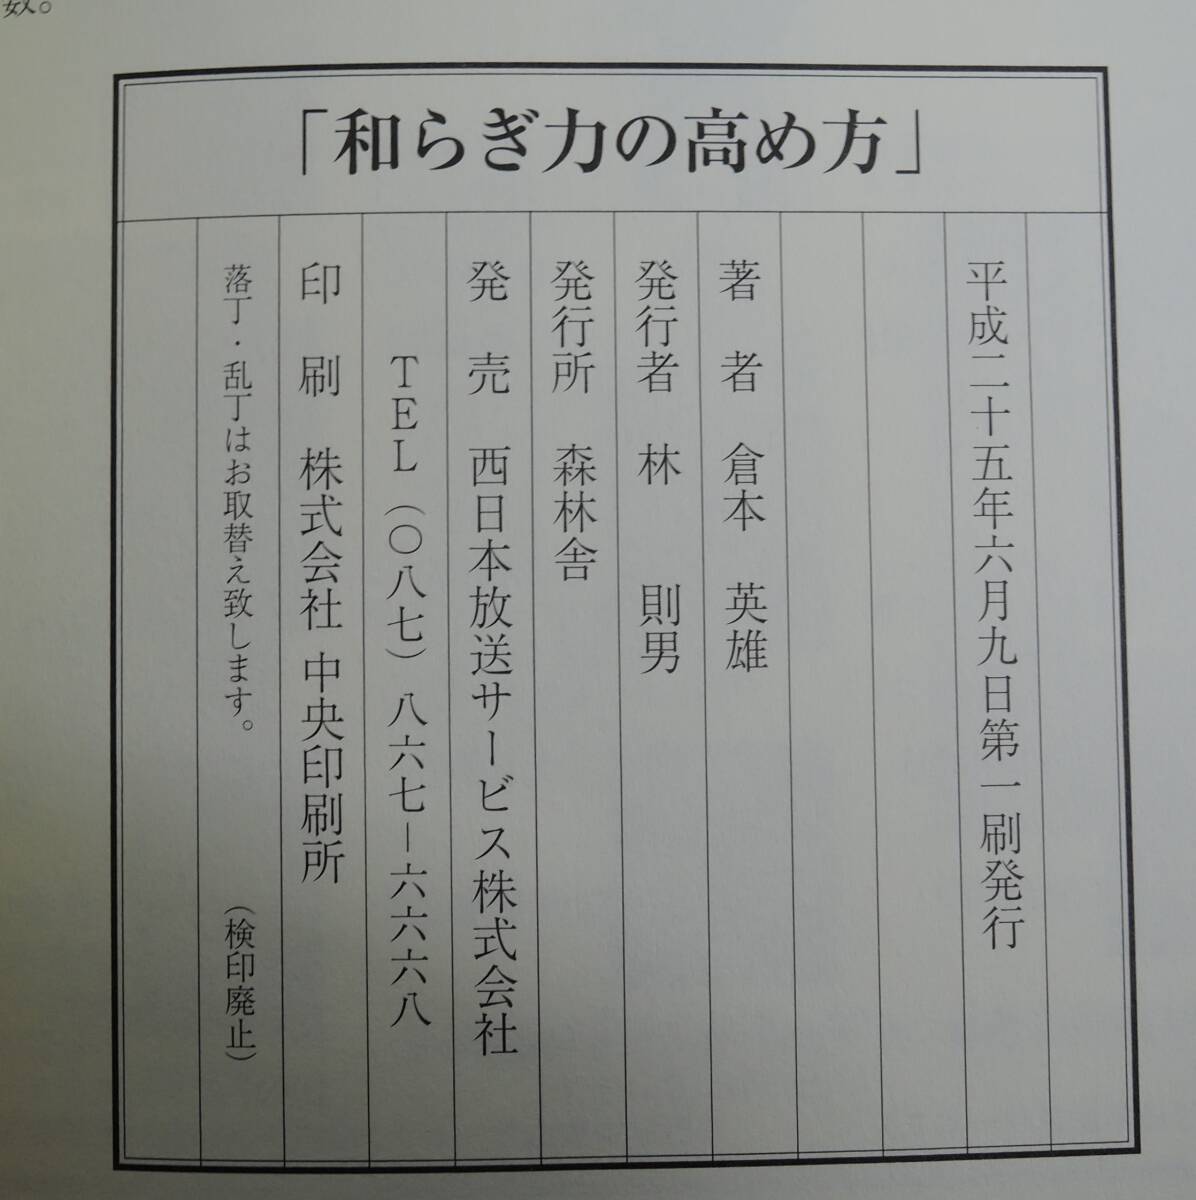 数。
「和らぎ力の高め方」
平成二十五年六月九日第一刷発行
著者 倉本 英雄
発行者 林 則男
発行所 森林舎
発売 西日本放送サービス株式会社
TEL(〇八七)八六七-六六六八
印刷 株式会社 中央印刷所
落丁・乱丁はお取替え致します。 (検印廃止)